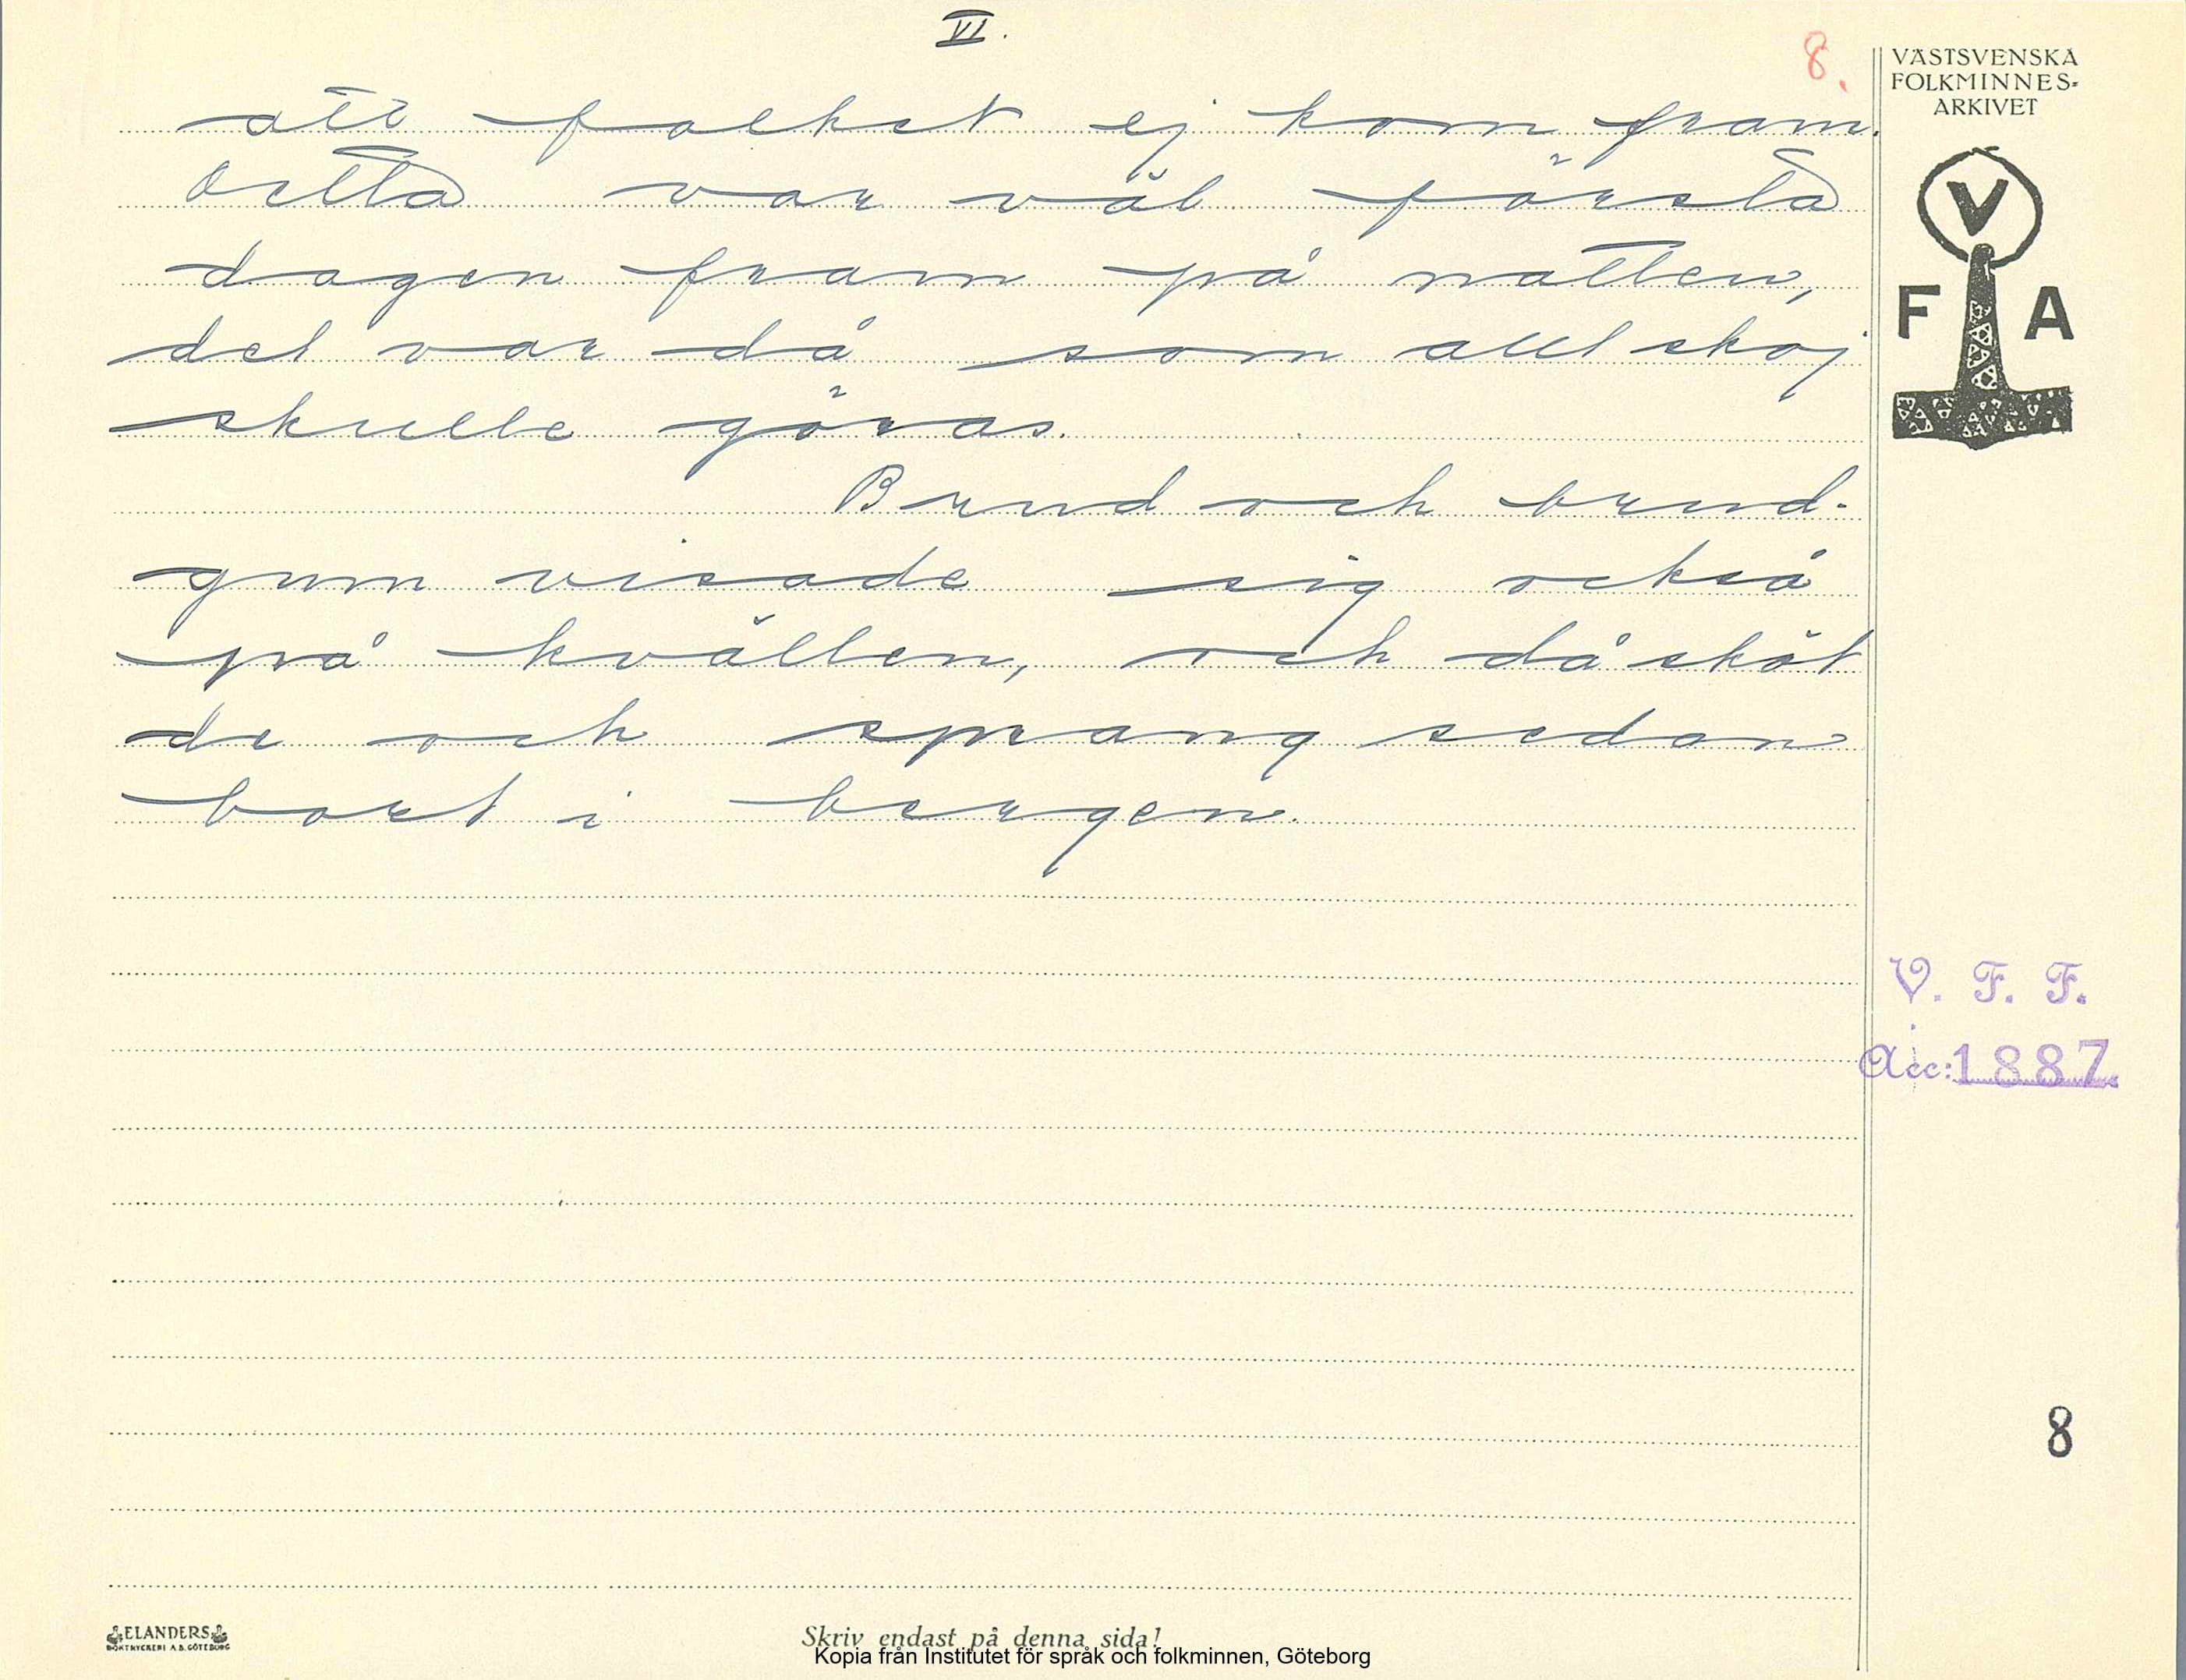 VI.
8.
VÄSTSVENSKA
FOLKMINNES-
ARKIVET
V
F A
att folket ej kom fram.
Detta var väl första
dagen fram på natten,
det var då som allt skoj
skulle göras.
Brud och brud-
gum visade sig också
på kvällen, och då sköt
de och sprang sedan
bort i bergen.
V. F. F.
Acc: 1887
8
ELANDERS
BOKTRYCKERI A.B. GÖTEBORG
Skriv endast på denna sida!
Kopia från Institutet för språk och folkminnen, Göteborg